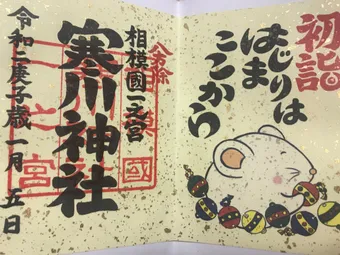 初詣
はじまりは
ここから
八方除
相模國一之宮
寒川神社
令和二庚子歳一月五日
相模國
一之宮